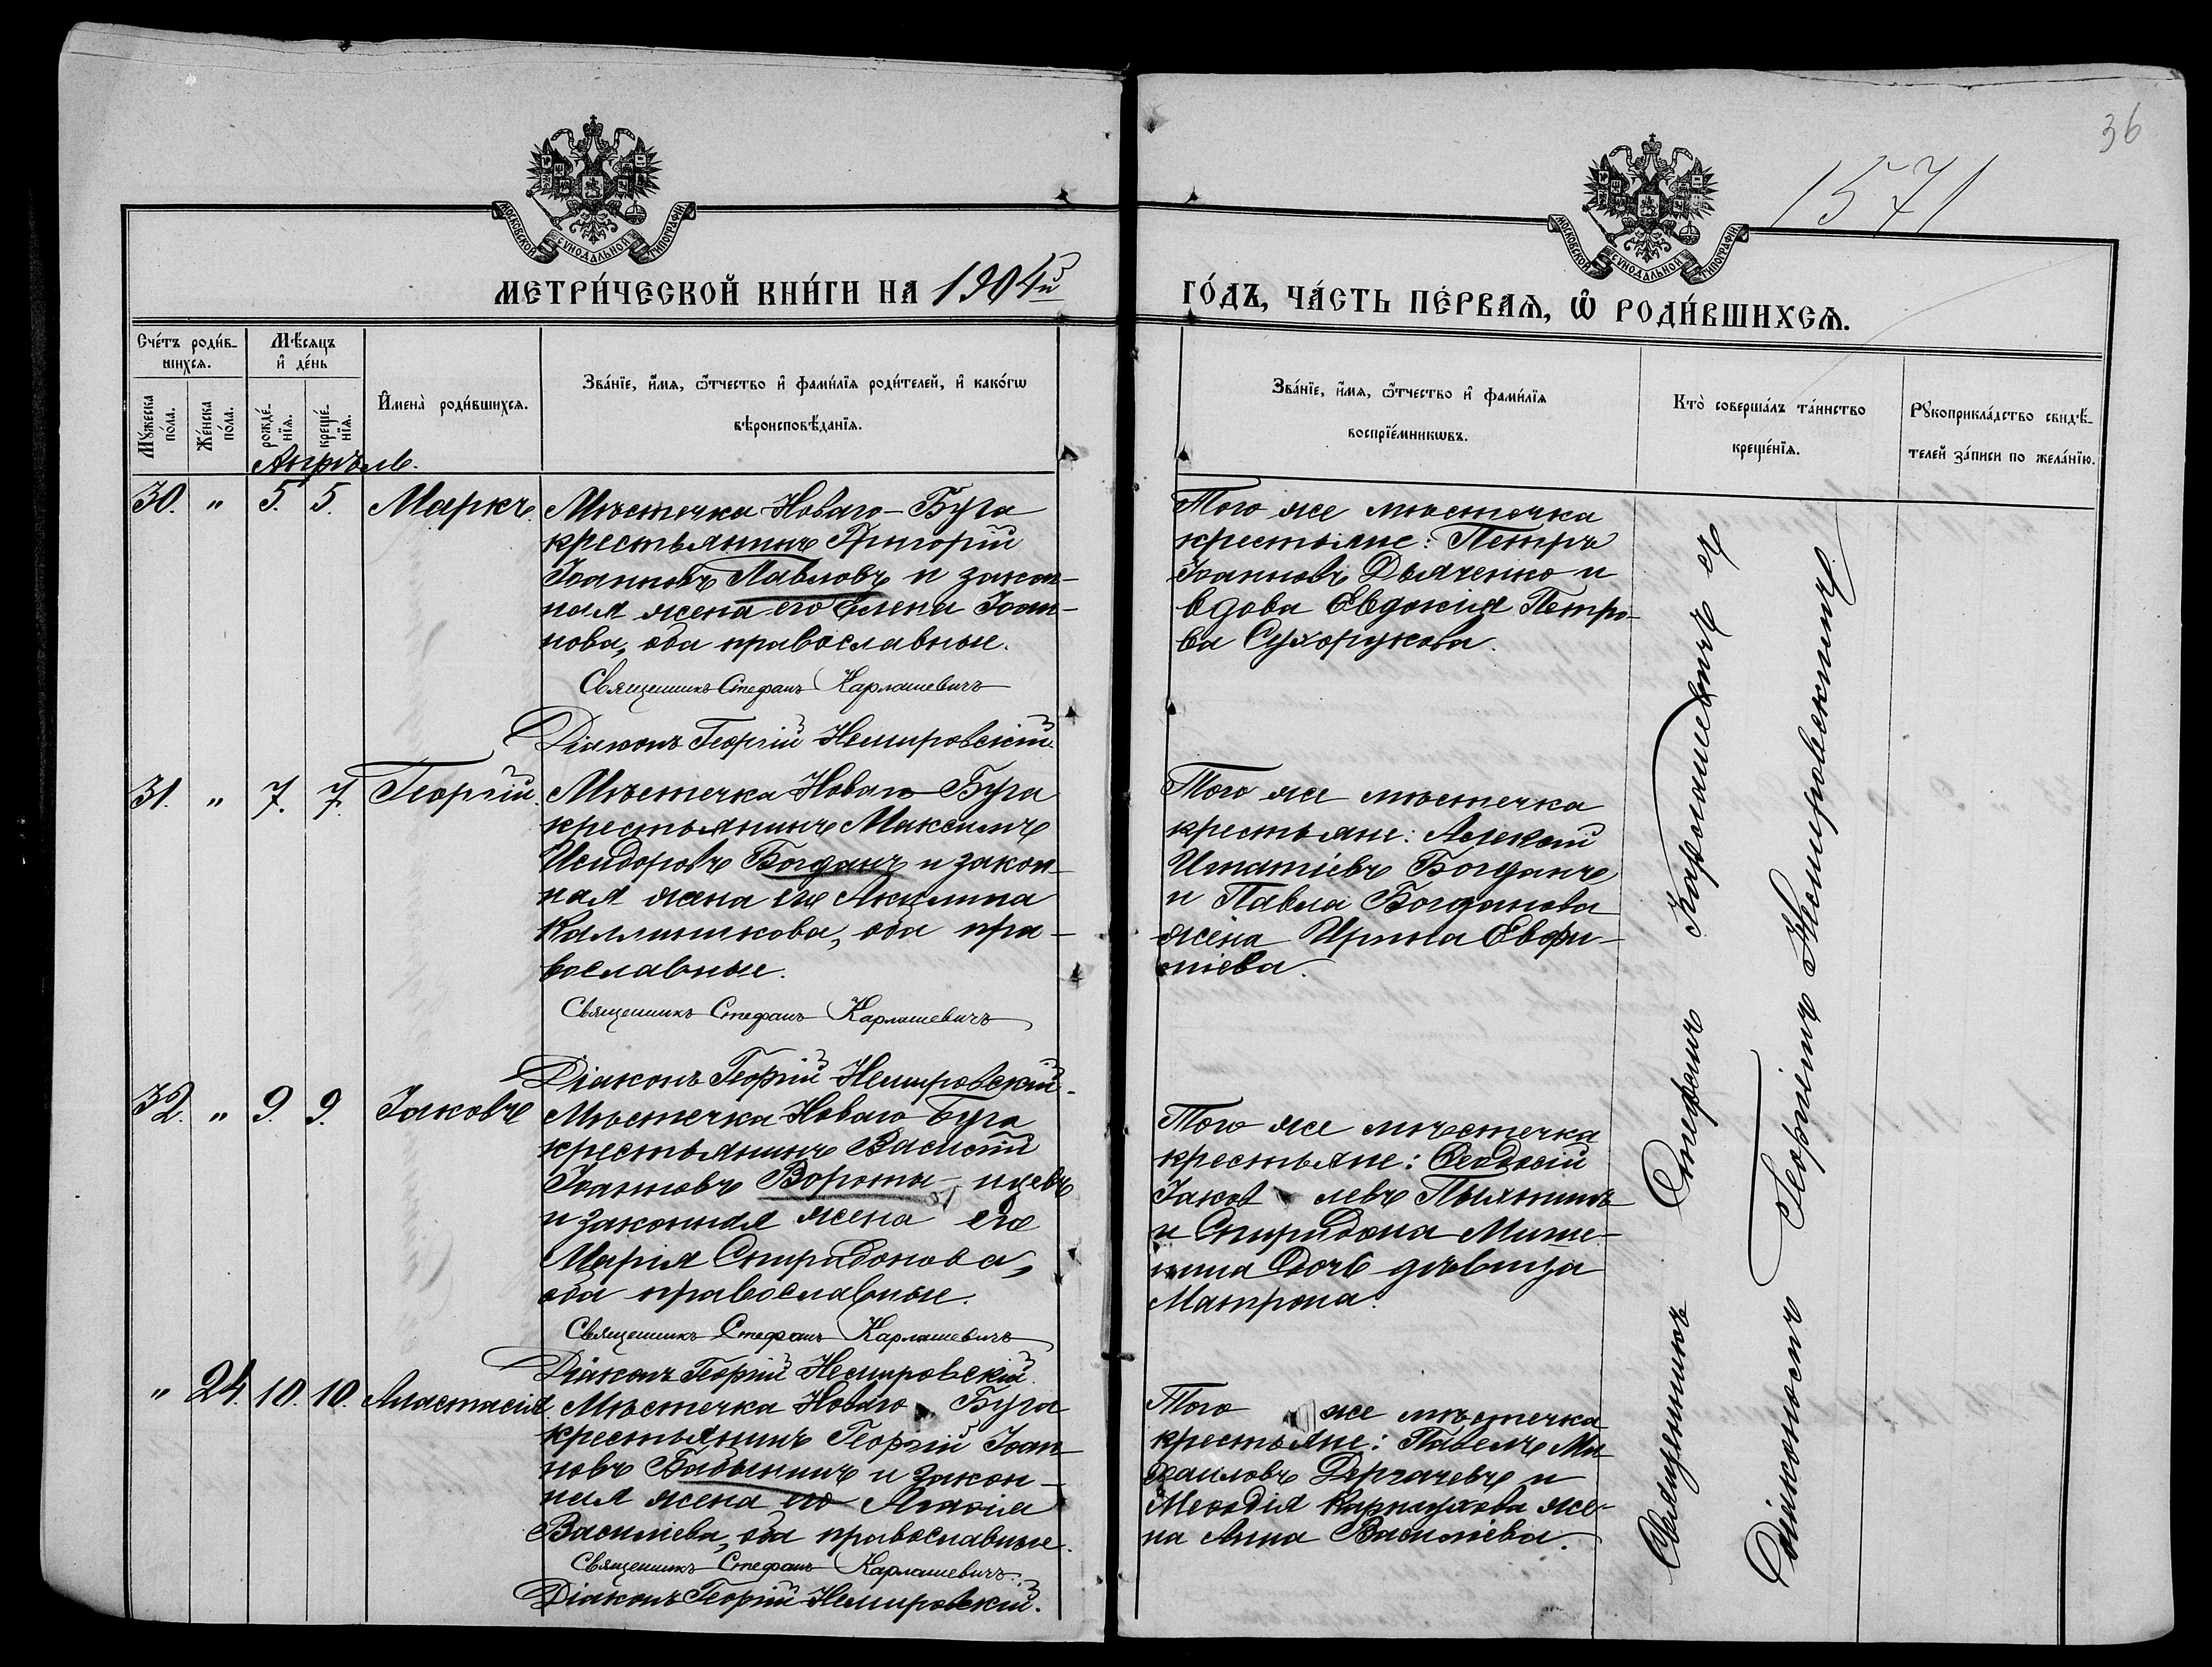 36
1571
МОСКОВСКОЙ СУНОДАЛЬНОЙ ТИПОГРАФІИ
МОСКОВСКОЙ СУНОДАЛЬНОЙ ТИПОГРАФІИ
МЕТРИ́ЧЕСКОЙ КНИ́ГИ НА 1904й
ГО́ДЪ, ЧА́СТЬ ПЕ́РВАѦ, Ѡ҆ РОДИ́ВШИХСѦ.
Сче́тъ роди́в-
шихсѧ.
Му́жеска по́ла.
Же́нска по́ла.
Мѣ́сѧцъ
и҆ де́нь
рожде́-
нїѧ.
креще́-
нїѧ.
И҆мена̀ роди́вшихсѧ.
Зва́нїе, и҆́мѧ, ѻ҆́тчество и҆ фами́лїѧ роди́телей, и҆ како́гѡ
вѣроисповѣ́данїѧ.
Зва́нїе, и҆́мѧ, ѻ҆́тчество и҆ фами́лїѧ
воспрїе́мникѡвъ.
Кто̀ соверша́лъ та́инство
креще́нїѧ.
Рꙋкоприкла́дство свидѣ́-
телей за́писи по жела́нїю.
Апрѣль.
30. " 5. 5. Маркъ.
Мѣстечка Новаго-Буга
крестьянинъ Григорій
Іоанновъ Павловъ и закон-
ная жена его Елена Іоан-
нова, оба православные.
Священникъ Стефанъ Карлашевичъ
Діаконъ Георгій Немировскій.
Того же мѣстечка
крестьяне: Петръ
Іоанновъ Дьяченко и
вдова Евдокія Петро-
ва Сухорукова.
31. " 7. 7. Георгій.
Мѣстечка Новаго Буга
крестьянинъ Максимъ
Исидоровъ Богданъ и закон-
ная жена его Акилина
Каллиникова, оба пра-
вославные.
Священникъ Стефанъ Карлашевичъ
Діаконъ Георгій Немировскій.
Того же мѣстечка
крестьяне: Алексій
Игнатіевъ Богданъ
и Павла Богданова
жена Ирина Евфи-
міева.
32. " 9. 9. Іаковъ
Мѣстечка Новаго Буга
крестьянинъ Василій
Іоанновъ Вороты- нцевъ
и законная жена его
Марія Спиридонова,
оба православные.
Священникъ Стефанъ Карлашевичъ
Діаконъ Георгій Немировскій.
Того же мѣстечка
крестьяне: Ѳеодосій
Іаков левъ Пьянинъ
и Спиридона Мише-
нина дочь дѣвица
Матрона.
" 24. 10. 10. Анастасія.
Мѣстечка Новаго Буга
крестьянинъ Георгій Іоан-
новъ Бабыкинъ и закон-
ная жена его Агаѳія
Василіева, оба православные.
Священникъ Стефанъ Карлашевичъ.
Діаконъ Георгій Немировскій.
Того же мѣстечка
крестьяне: Павелъ Ми-
хаиловъ Дергачевъ и
Меѳодія Карпухова же-
на Анна Василіева.
Священникъ Стефанъ Карлашевичъ съ
Діакономъ Георгіемъ Немировскимъ.